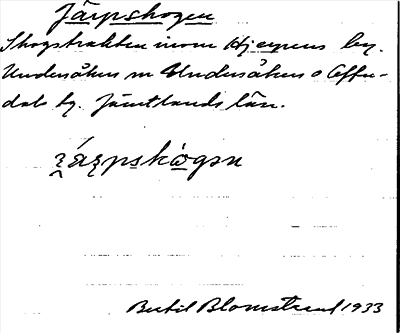 Järpskogen
Skogstrakten inom Hjerpens by.
Undersåkers sn Undersåkers o Offer-
dals tg. Jämtlands län.
Bertil Blomstrand 1933